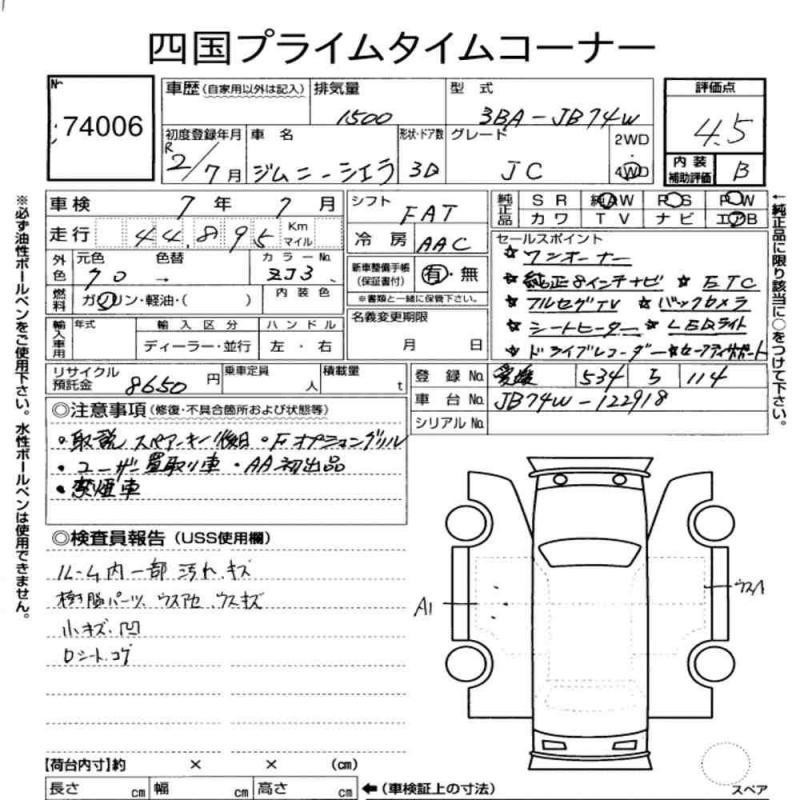 四国プライムタイムコーナー
No. 74006
車歴 (自家用以外は記入) 排気量 1500 型式 3BA-JB74W
評価点 4.5
初度登録年月 R2/7月 車名 ジムニーシエラ 形状・ドア数 3D グレード JC 2WD 4WD
内装補助評価 B
車検 7年7月
走行 44,895 Km マイル
シフト FAT
冷房 AAC
純正品 SR 純AW PS PW
カワ TV ナビ エアB
外色 元色 クロ 色替 カラーNo. ZJ3
燃料 ガソリン・軽油・( ) 内装色
新車整備手帳(保証書付) 有・無
※書類と一緒に保管下さい。
セールスポイント
☆ワンオーナー
☆純正8インチナビ ☆ETC
☆フルセグTV ☆バックカメラ
☆シートヒーター ☆LEDライト
☆ドライブレコーダー ☆セーフティサポート
輸入車用 年式 輸入区分 ハンドル
ディーラー・並行 左・右
名義変更期限 月 日
リサイクル預託金 8650円 乗車定員 人 積載量 t
登録No. 愛媛 534 う 114
車台No. JB74W-122918
シリアルNo.
◎注意事項 (修復・不具合個所および状態等)
・取説 スペアキー後日 ・Fオプショングリル
・ユーザー買取り車 ・AA初出品
・禁煙車
◎検査員報告 (USS使用欄)
ルーム内一部汚れ、キズ
樹脂パーツ、ウスアセ、ウスキズ
小キズ、凹
Dシート、コゲ
A1
ウスA
スペア
【荷台内寸】約 × × (cm)
長さ cm 幅 cm 高さ cm ←(車検証上の寸法)
※必ず油性ボールペンをご使用下さい。水性ボールペンは使用できません。
←純正品に限り該当に○をつけて下さい。